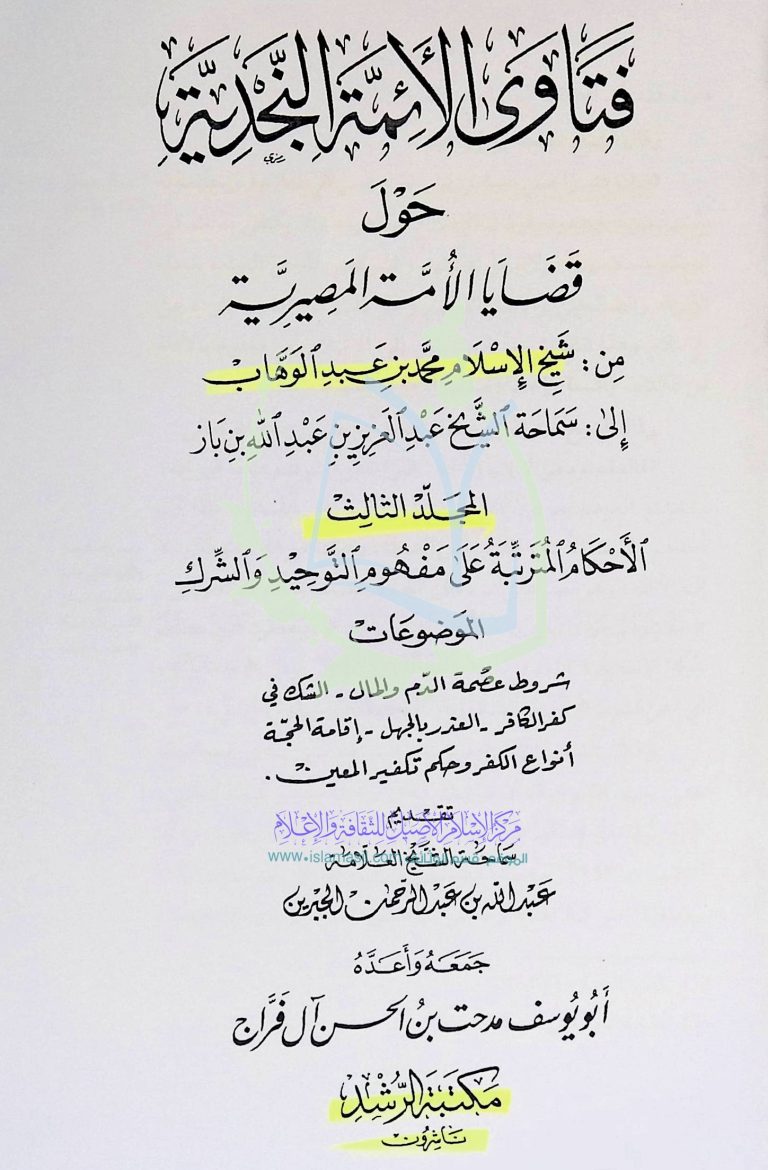 فَتَاوَى الأَئِمَّة النَّجْدِيَّة
حَوْلَ
قَضَايَا الأُمَّة المَصِيرِيَّة
مِن: شَيْخِ الإِسْلَامِ مُحَمَّد بْنِ عَبْدِ الْوَهَّابْ
إِلَىٰ: سَمَاحَة الشَّيْخ عَبْدِ الْعَزِيزِ بْنِ عَبْدِ اللهِ بْنِ بَاز
المجَلّدُ الثالِثْ
الأَحْكَامُ الْمُتَرَتِّبَةُ عَلَىٰ مَفْهُومِ التَّوْحِيْدِ وَالشِّركِ
الموَضوعَات
شروط عصمة الدّم والمال - الشك في
كفر الكافر - العذر بالجهل - إقامة الحجّة
أنواع الكفر وحكم تكفير المعين.
تقديم
مركز الإسلام الأصيل للثقافة والإعلام
سماحة الشيخ العلّامة
www.islamasil.com
عبد الله بن عبد الرّحمن الجبرين
جَمَعَهُ وَأَعَدَّهُ
أَبُو يُوسف مدحت بنُ الحسن آل فَرَّاج
مَكتَبَة الرُّشْدِ
نَاشِرُون